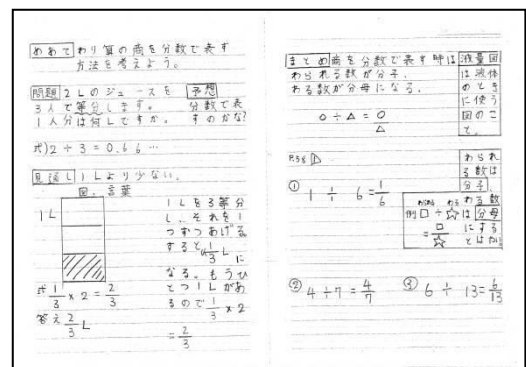 めあて わり算の商を分数で表す
方法を考えよう。
問題 2Lのジュースを
3人で等分します。
1人分は何Lですか。
予想
分数で表
すのかな?
式)2÷3=0.66…
見通し 1Lより少ない。
図、言葉
1L
1Lを3等分
し、それを1
つずつあげる。
すると1/3Lに
なる。もうひ
とつ1Lがあ
るので1/3×2
=2/3
式 1/3×2=2/3
答え 2/3L
まとめ 商を分数で表す時は
わられる数が分子、
わる数が分母になる。
○÷△=○/△
液量図
は液体
のとき
に使う
図のこ
と。
P.38
① 1÷6=1/6
わられ
る数は
分子、
わる数
は分母
にする
とはかい
例 □÷☆
=□/☆
② 4÷7=4/7
③ 6÷13=6/13